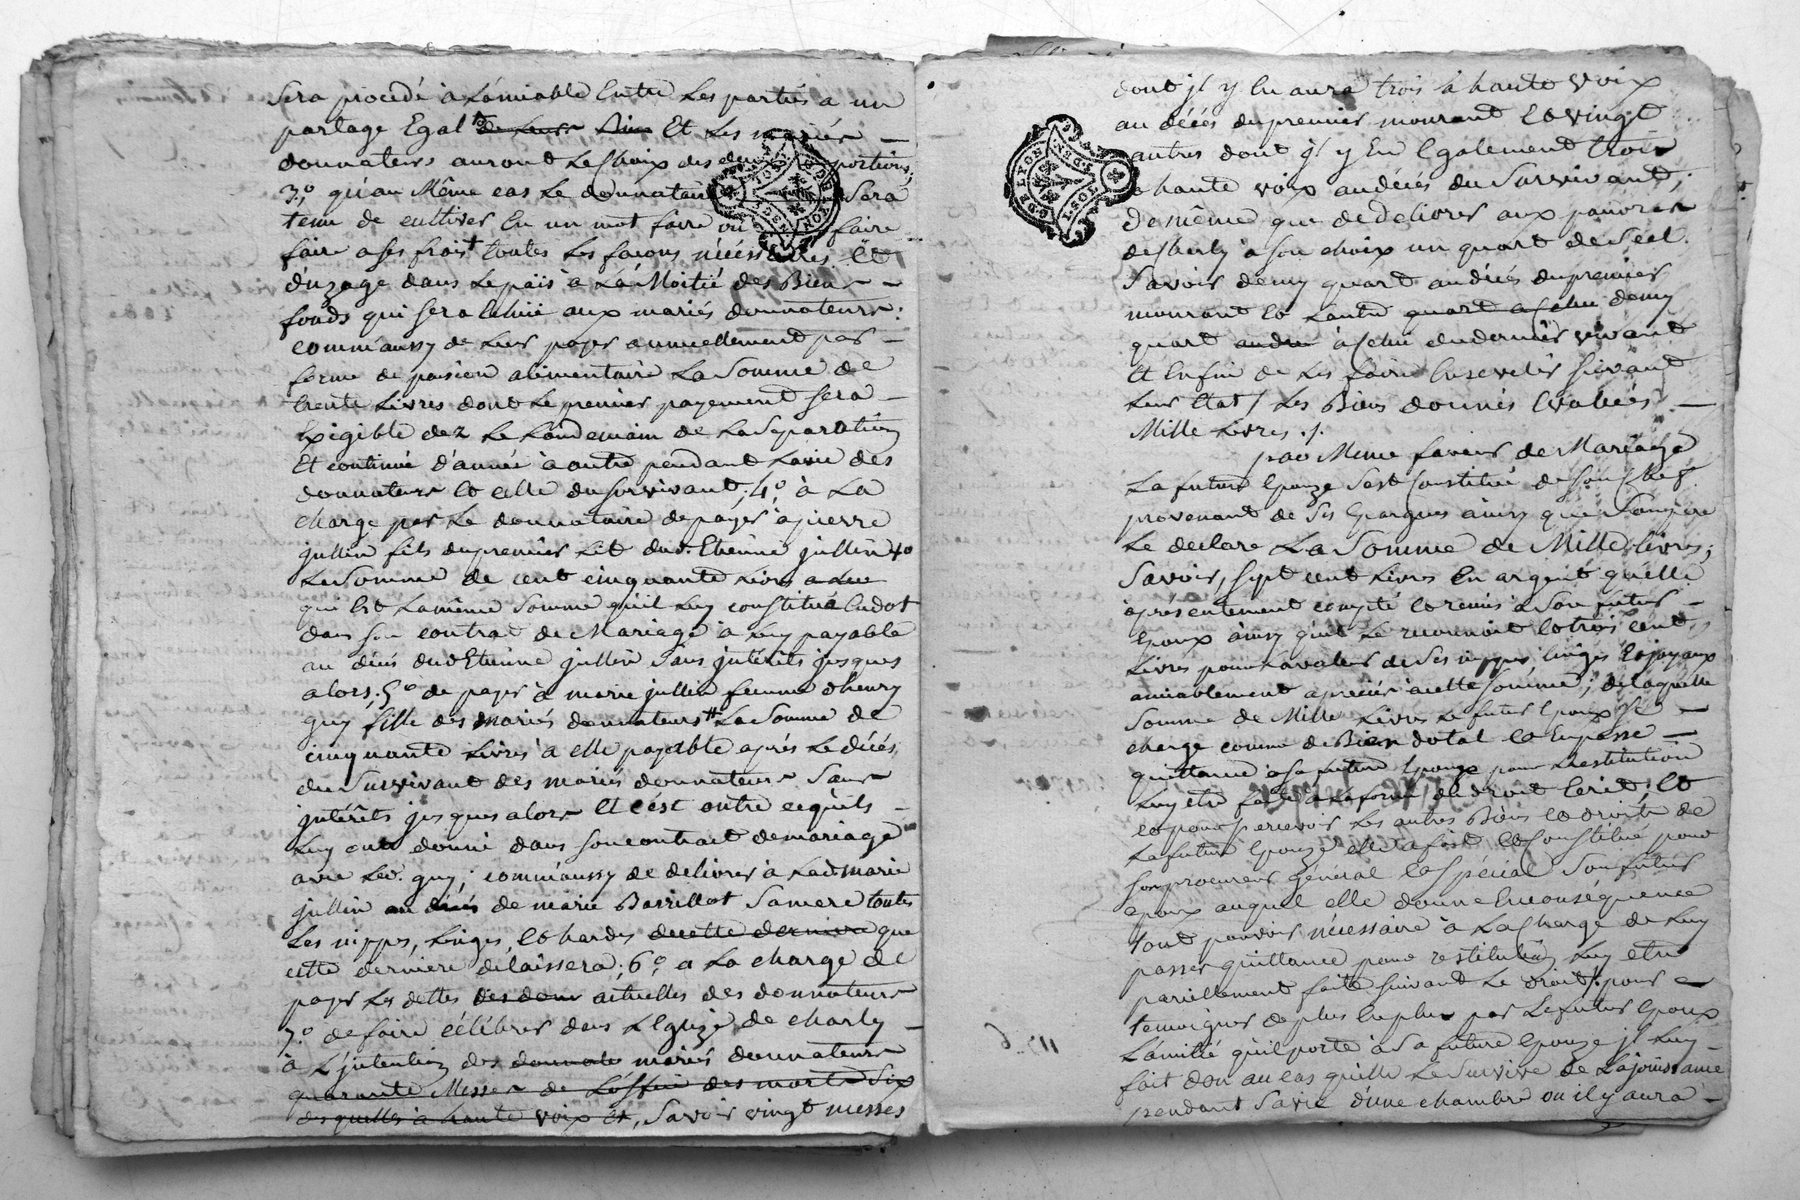 Sera procedé a L'amiable Entre Les parties a un
partage Egal de Leurs Biens Et Les mariés
donnateurs auront Le Choix des deux portions;
3.° qu'au Même cas Le donnataire Sera
tenu de cultiver En un mot faire ou faire
faire a ses frois toutes Les façons nécéssaires Et
d'uzage dans Le païs à La Moitié des Biens
fonds qui sera Echüe aux mariés donnateurs:
comm'aussy de Leur payer annuellement par
forme de pension alimentaire La Somme de
trente Livres dont Le premier payement sera
Exigible dez Le Landemain de La Separation
Et continué d'année à autre pendant La vie des
donnateurs Et celle du Survivant; 4.° à La
charge par Le donnataire de payer à pierre
jullin fils du premier Lit dud. Etienne jullin
La Somme de cent cinquante Livres
qui Est La même Somme qu'il Luy constitua En dot
dans son contrat de Mariage à Luy payable
au décés dud. Etienne jullin Sans jntérêts jusques
alors; 5.° de payer à marie jullin femme d'henry
guy fille des mariés donnateurs La Somme de
cinquante Livres à elle payable aprés Le décés
du Survivant des mariés donnateurs Sans
jntérêts jusques alors Et c'est outre ce qu'ils
Luy ont donné dans son contrat de mariage
avec Led. guy; comm'aussy de delivrer à Lad. marie
jullin au décés de marie Barrillot Sa mere toutes
Les nippes, Linges, Et hardes de cette derniere que
cette derniere delaissera; 6.° a La charge de
payer Les dettes actuelles des donnateurs
7.° de faire célébrer dans L'Eglize de charly
à L'jntention des donnate mariés donnateurs
quarante Messes de L'office des morts Six
desquelles à haute voix Et, Savoir vingt messes
dont jl y En aura trois à haute voix
au décés du premier mourant Et vingt
autres dont jl y En Egalement trois
a haute voix au décés du Survivant;
de même que de delivrer aux pauvres
de charly à son choix un quart de Seel
Savoir demy quart au décés du premier
mourant Et L'autre quart a Celui demy
quart à Celui du dernier vivant
Et Enfin de Les faire Ensevelir suivant
Leur Etat / Les Biens donnés Evalués
Mille Livres ./.
par Meme faveur de Mariage
La future Epouze s'est Constitué de Son Chef
provenant de Ses Epargnes ainsy que Son pere
Le declare La Somme de Mille Livres;
Savoir, sept cent Livres En argent qu'elle
a présentement compté Et remis à Son futur
Epoux ainsy qu'il Le reconnoit Et trois cent
Livres pour La valeur de Ses nippes, linges Et joyaux
amiablement apreciés à cette Somme; de Laquelle
Somme de Mille Livres Le futur Epoux Se
charge comme de Bien dotal Et En passe
quittance à Sa future Epouze pour restitution
Luy etre faite à La forme du droit Ecrit; Et
Et pour percevoir Les autres Biens Et droits de
La future Epouze elle a fait Et Constitué pour
Son procureur général Et Spécial Son futur
epoux auquel elle donne En conséquence
tout pouvoir nécessaire à La Charge de Luy
passer quittance pour restitution Luy etre
pareillement faite suivant Le droit; pour
temoigner de plus En plus par Le futur Epoux
L'amitié qu'il porte à Sa future Epouze jl Luy
fait don au cas qu'elle Le Survive de La jouissance
pendant Sa vie d'une chambre ou il y aura